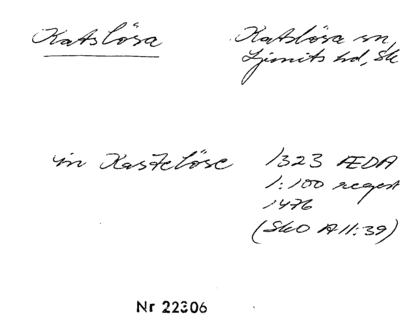 Katslösa
Katslösa sn,
Ljunits hd, Sk
in Kastelöse
1323 ÆDA
1:100 regest
1476
(SkO A11:39)
Nr 22306